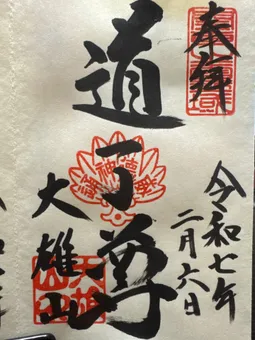 奉拜
令和七年
二月六日
道了尊
大雄山